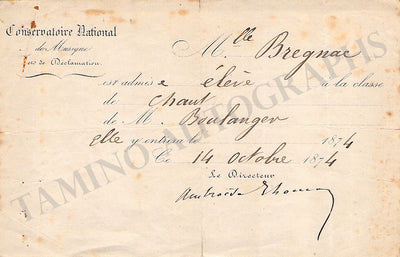 Conservatoire National
de Musique
et de Déclamation.
Mlle Bregnac
est admise élève à la classe
de Chant
de M. Boulanger
elle y entrera le 1874
Ce 14 octobre 1874
Le Directeur
Ambroise Thomas
TAMINO AUTOGRAPHS